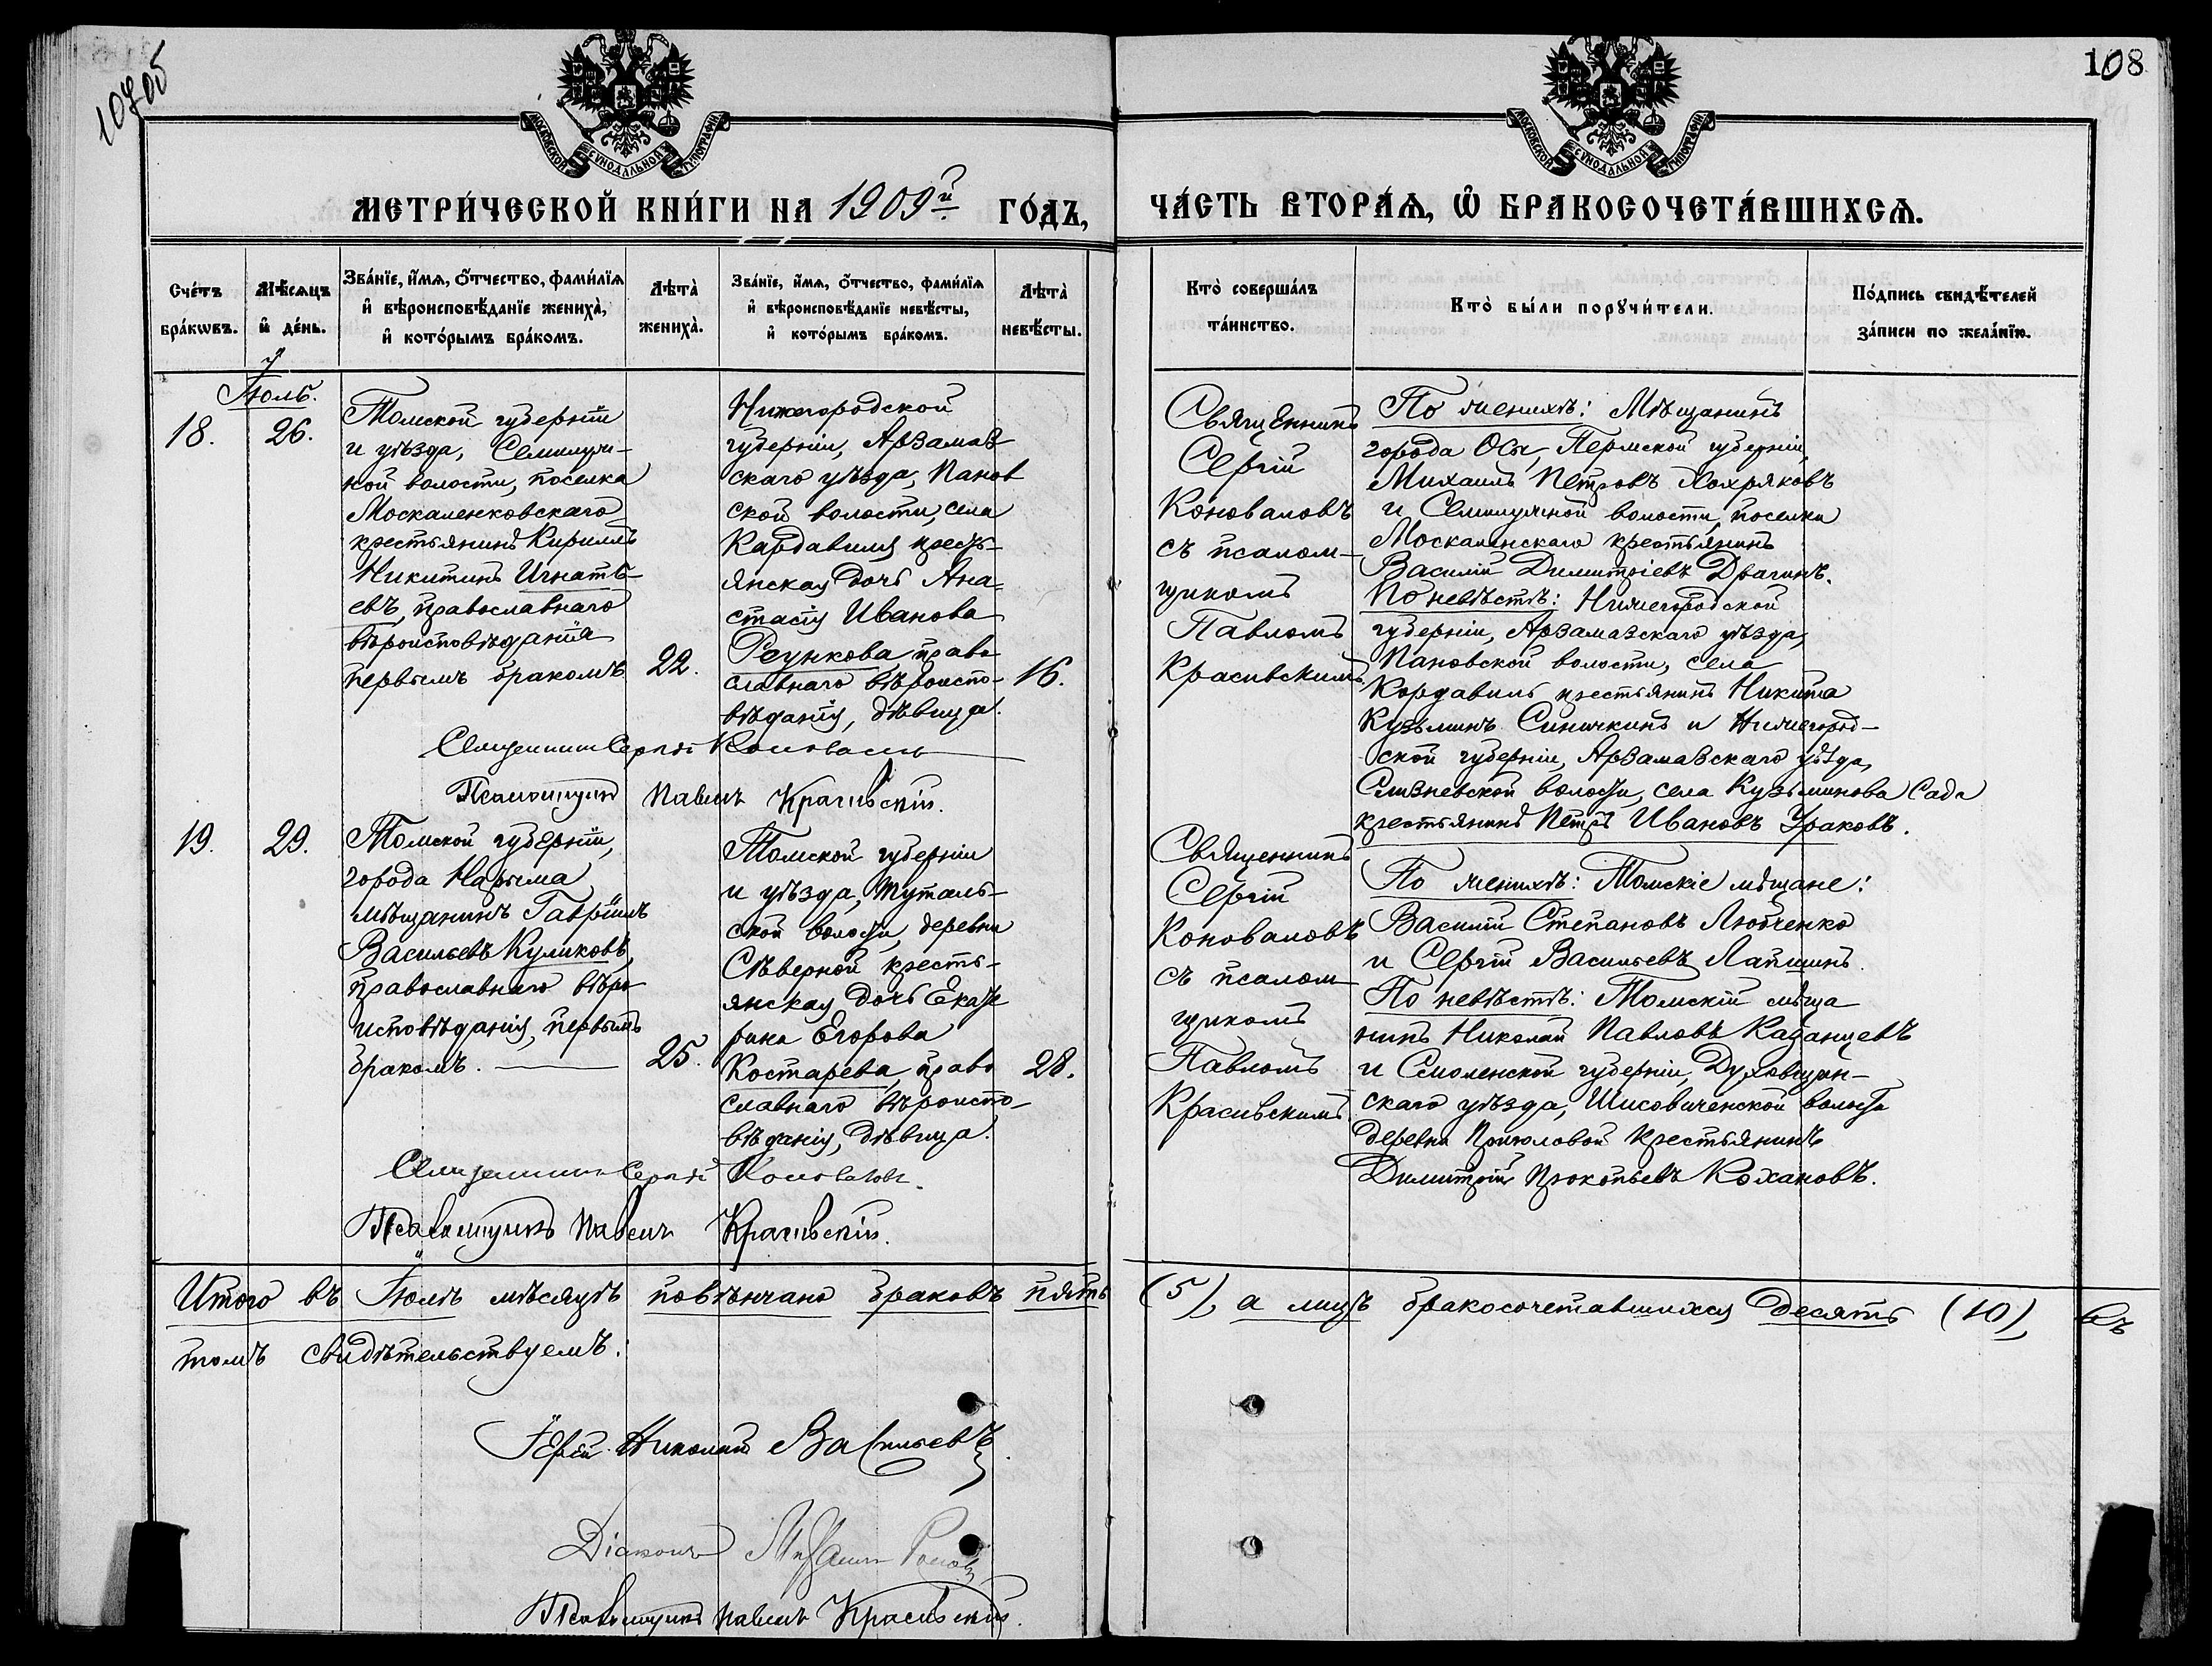 107об
108
МОСКОВСКОЙ СУНОДАЛЬНОЙ ТИПОГРАФІИ
МОСКОВСКОЙ СУНОДАЛЬНОЙ ТИПОГРАФІИ
МЕТРИ́ЧЕСКОЙ КНИ́ГИ НА 1909й ГО́ДЪ,
ЧА́СТЬ ВТОРА́Ѧ, Ѽ БРАКОСОЧЕТА́ВШИХСѦ.
Сче́тъ
бра́кѡвъ.
Мѣ́сѧцъ
и҆ де́нь.
Зва́нїе, и҆́мѧ, ѻ҆́тчество, фами́лїѧ
и҆ вѣроисповѣ́данїе жениха̀,
и҆ кото́рымъ бра́комъ.
Лѣта̀
жениха̀.
Зва́нїе, и҆́мѧ, ѻ҆́тчество, фами́лїѧ
и҆ вѣроисповѣ́данїе невѣ́сты,
и҆ кото́рымъ бра́комъ.
Лѣта̀
невѣ́сты.
Кто̀ соверша́лъ
та́инство.
Кто̀ бы́ли порꙋчи́тели.
По́дпись свидѣ́телей
за́писи по жела́нїю.
Іюль.
18.
26.
Томской губерніи
и уѣзда, Семилуж-
ной волости, поселка
Москаленковскаго
крестьянинъ Кириллъ
Никитинъ Игнать-
евъ, православнаго
вѣроисповѣданія
первымъ бракомъ
22.
Нижегородской
губерніи, Арзамаз
скаго уѣзда, Панов
ской волости, села
Кардавиля кресть-
янская дочь Ана-
стасія Иванова
Реункова, право
славнаго вѣроиспо-
вѣданія, дѣвица.
16.
Священникъ
Сергій
Коноваловъ
съ псалом-
щикомъ
Павломъ
Красивскимъ.
По женихѣ: Мѣщанинъ
города Осы, Пермской губерніи,
Михаилъ Петровъ Хохряковъ
и Семилужной волости, поселка
Москаленскаго крестьянинъ
Василій Димитріевъ Драгинъ.
По невѣстѣ: Нижегородской
губерніи, Арзамазскаго уѣзда,
Пановской волости, села
Кордавиль крестьянинъ Никита
Кузьминъ Синичкинъ и Нижегород-
ской губерніи, Арзамазскаго уѣзда,
Слизневской волости, села Кузьминова Сада
крестьянинъ Петръ Ивановъ Ураковъ.
Священникъ Сергій Коноваловъ
Псаломщикъ Павелъ Красивскій.
19.
29.
Томской губерніи,
города Нарыма
мѣщанинъ Гавріилъ
Васильевъ Куликовъ,
православнаго вѣро
исповѣданія, первымъ
бракомъ.
25.
Томской губерніи
и уѣзда, Туталь-
ской волости, деревни
Сѣверной кресть-
янская дочь Екате
рина Егорова
Костарева, право
славнаго вѣроиспо-
вѣданія, дѣвица.
28.
Священникъ
Сергій
Коноваловъ
съ псалом
щикомъ
Павломъ
Красивскимъ
По женихѣ: Томскіе мѣщане:
Василій Степановъ Любченко
и Сергій Васильевъ Лапшинъ.
По невѣстѣ: Томскій мѣща
нинъ Николай Павловъ Казанцевъ
и Смоленской губерніи, Духовщин-
скаго уѣзда, Шисовиченской волости
деревни крестьянинъ
Димитрій Прокопьевъ Кохановъ.
Священникъ Сергій Коноваловъ.
Псаломщикъ Павелъ Красивскій.
Итого въ Іюлѣ мѣсяцѣ повѣнчано браковъ пять (5), а лицъ бракосочетавшихся десять (10), въ
томъ свидѣтельствуемъ:
Іерей Николай Васильевъ.
Діаконъ Михаилъ
Псаломщикъ Павелъ Красивскій.